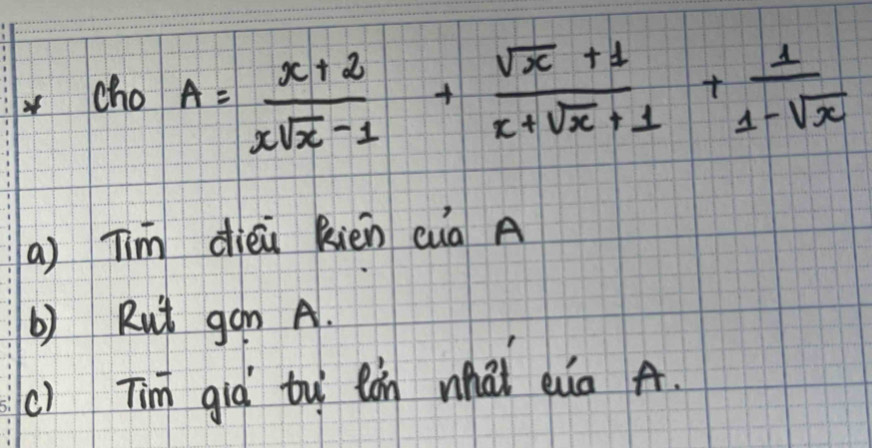 * Cho A = \frac{x+2}{x\sqrt{x}-1} + \frac{\sqrt{x}+1}{x+\sqrt{x}+1} + \frac{1}{1-\sqrt{x}}
a) Tìm điều kiện của A
b) Rút gọn A.
c) Tìm giá trị lớn nhất của A.